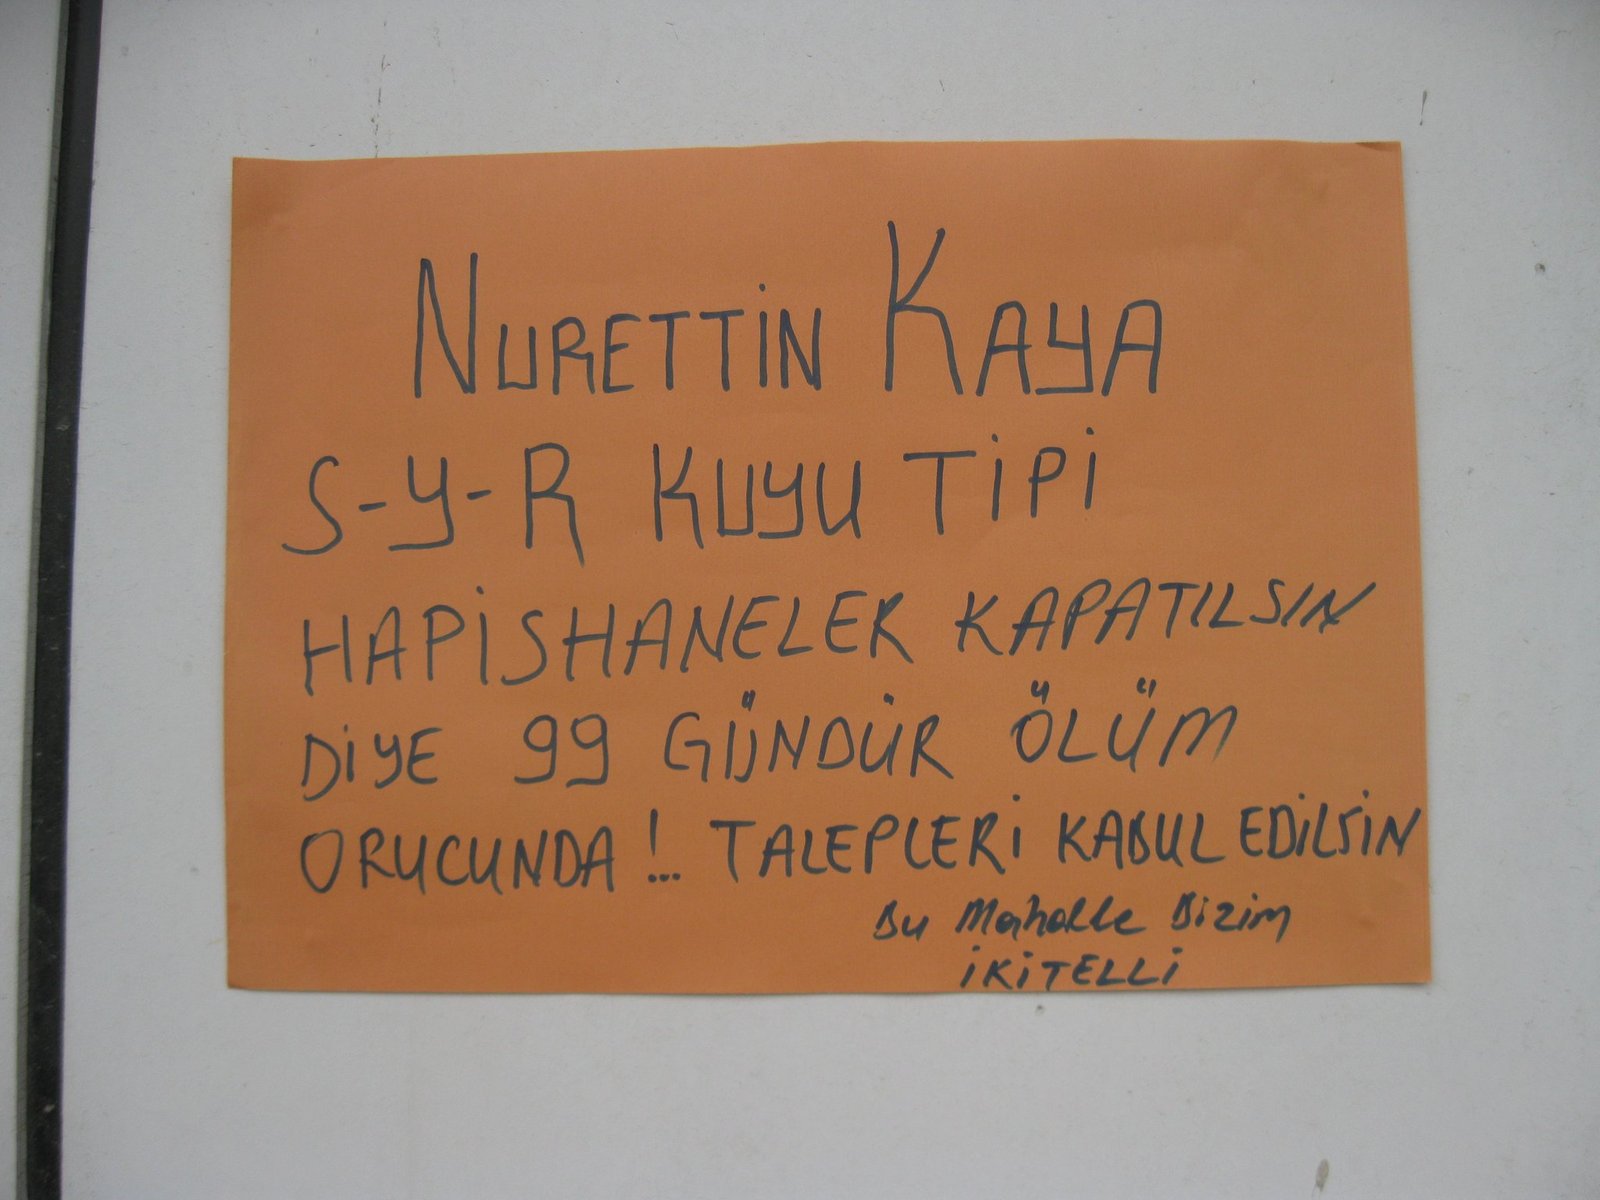 NURETTİN KAYA
S-Y-R KUYU TİPİ
HAPİSHANELER KAPATILSIN
DİYE 99 GÜNDÜR ÖLÜM
ORUCUNDA!... TALEPLERİ KABUL EDİLSİN
Bu Mahalle Bizim
İKİTELLİ